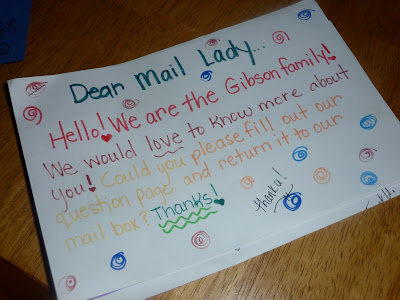 Dear Mail Lady...
Hello! We are the Gibson family!
We would love to know more about
you! Could you please fill out our
question page and return it to our
mail box? Thanks!